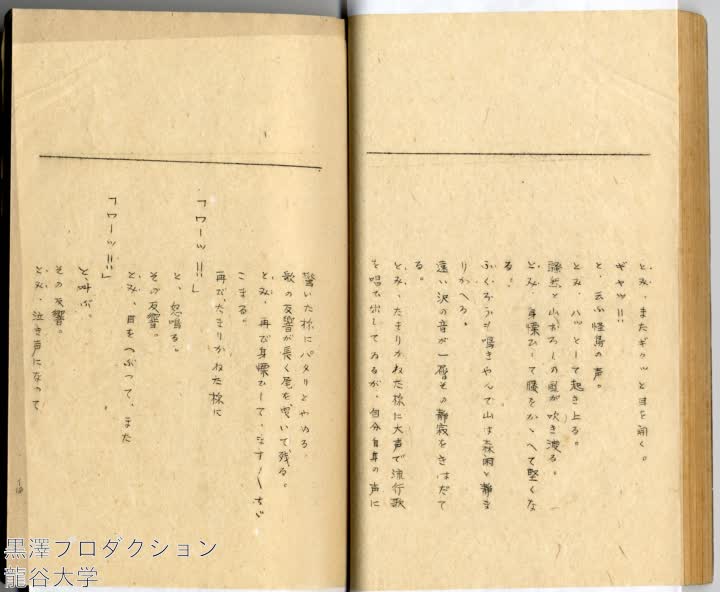 とみ、またギクッと目を開く。
ギャッ!!
と、云ふ怪鳥の声。
とみ、ハッとして起き上る。
颯然と山おろしの風が吹き渡る。
とみ、身慄ひして膝をかゝへて堅くな
る。
ふくろうも鳴きやんで山は森閑と静ま
りかへる。
遠い沢の音が一層その静寂をきはだて
る。
とみ、たまりかねた様に大声で流行歌
を唱ひ出してゐるが、自分自身の声に
驚いた様にパタリとやめる。
歌の反響が長く尾を曳いて残る。
とみ、再び身慄ひして、ますます〳〵ちゞ
こまる。
再び、たまりかねた様に
「ワーッ!!」
と、怒鳴る。
その反響。
とみ、目をつぶつて、また
「ワーッ!!」
と、叫ぶ。
その反響。
とみ、泣き声になつて
黒澤プロダクション
龍谷大学